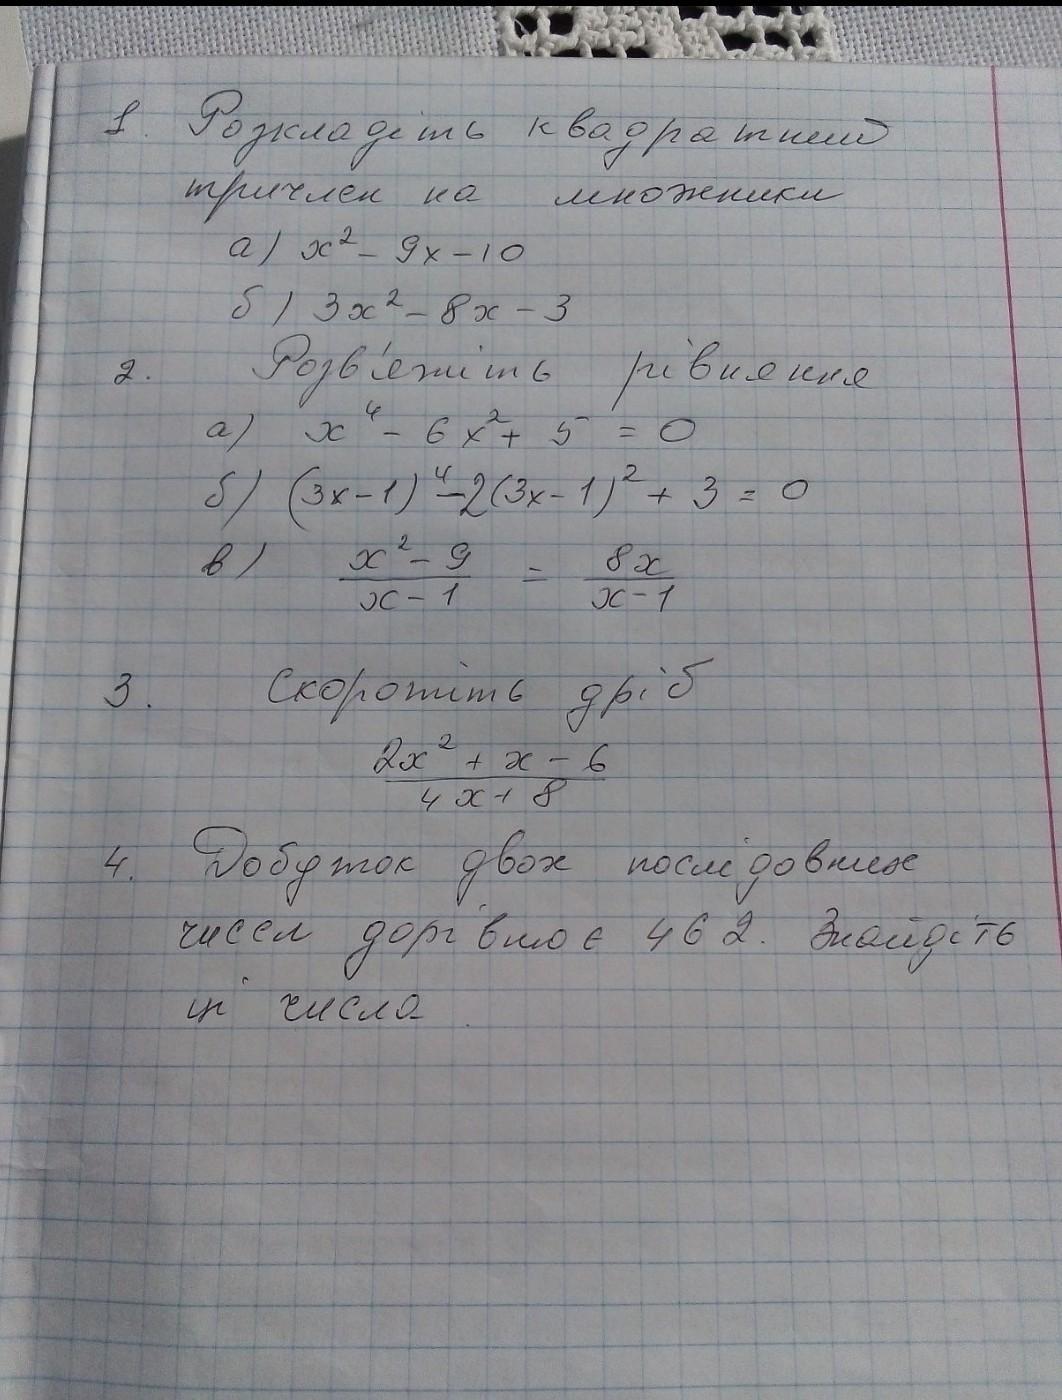 1. Розкладіть квадратний
тричлен на множники
а) x² - 9x - 10
б) 3x² - 8x - 3
2. Розв'яжіть рівняння
а) x⁴ - 6x² + 5 = 0
б) (3x-1)⁴ - 2(3x-1)² + 3 = 0
в) (x² - 9)/(x - 1) = 8x/(x - 1)
3. Скоротіть дріб
(2x² + x - 6)/(4x + 8)
4. Добуток двох послідовних
чисел дорівнює 462. Знайдіть
ці числа.